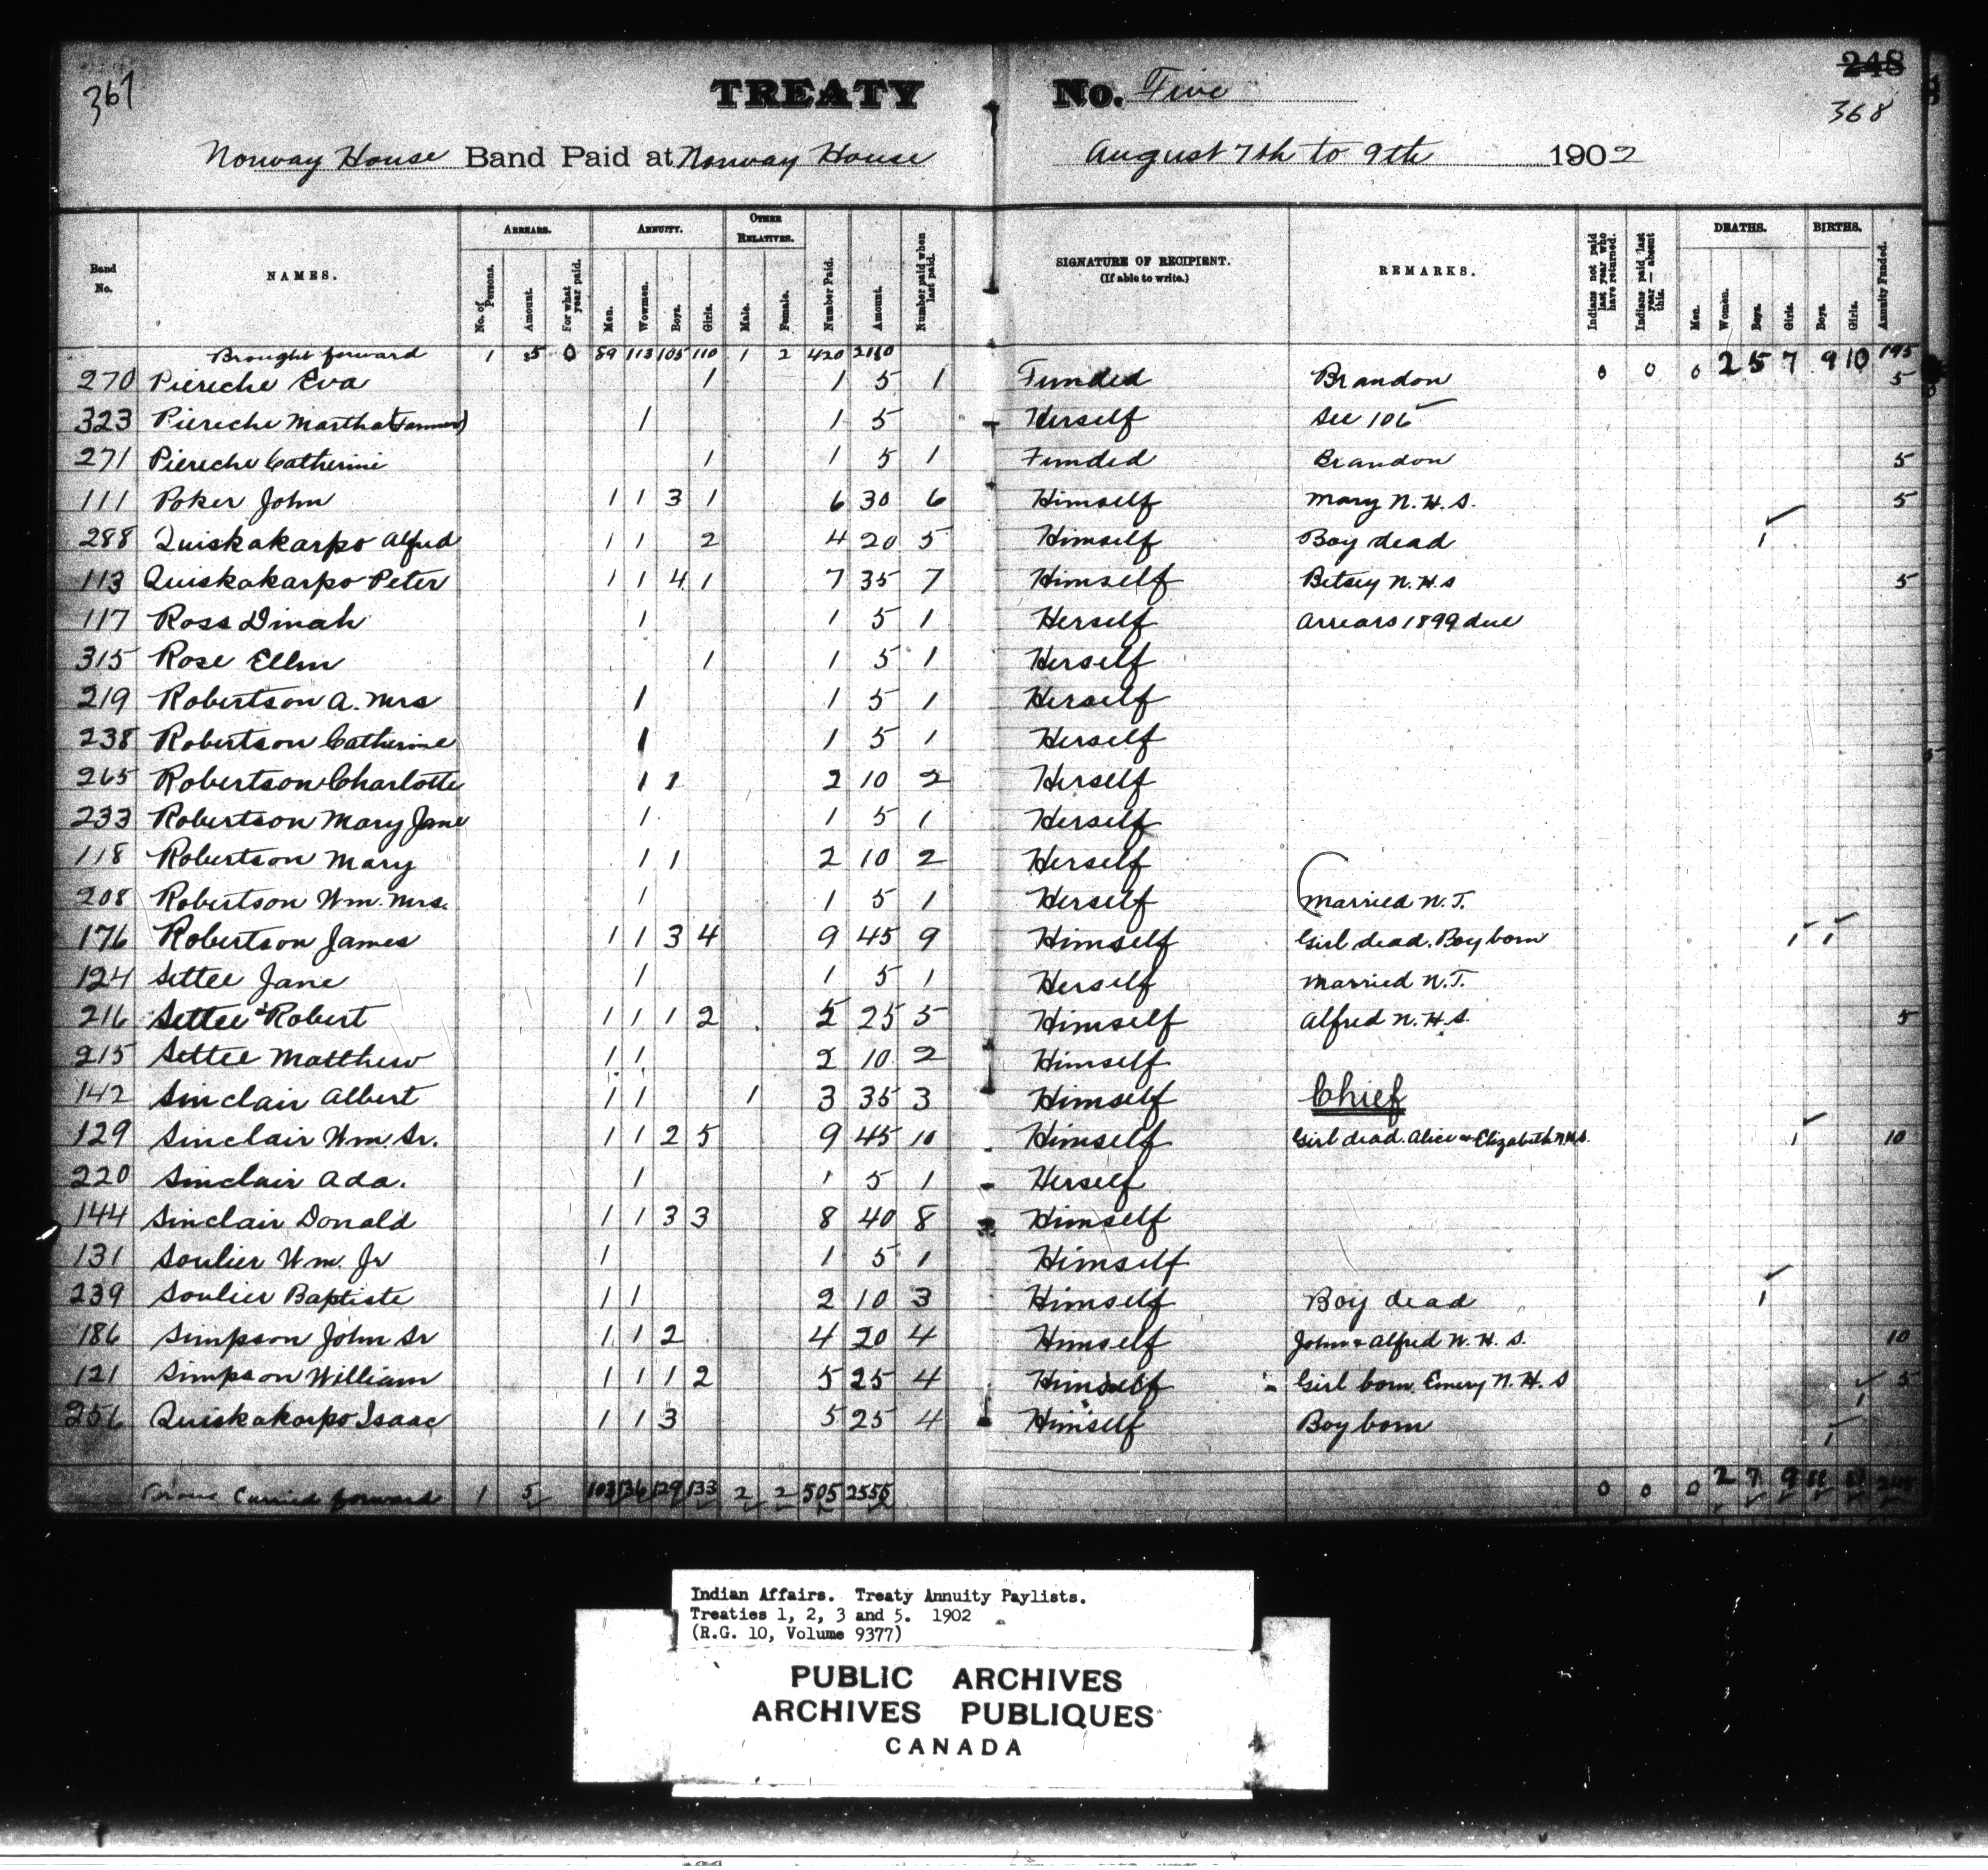 367
TREATY No. Five
248
368
Norway House Band Paid at Norway House August 7th to 9th 1902
Band No. NAMES. ARREARS. No. of Persons. Amount. For what year paid. ANNUITY. Men. Wowmen. Boys. Girls. OTHER RELATIVES. Male. Female. Number Paid. Amount. Number paid when last paid. SIGNATURE OF RECIPIENT. (If able to write.) REMARKS. Indians not paid last year who have returned. Indians paid last year — absent this. DEATHS. Men. Women. Boys. Girls. BIRTHS. Boys. Girls. Annuity Funded.
Brought forward 1 5 0 89 113 105 110 1 2 420 2160 0 0 0 2 5 7 9 10 195
270 Piereche Eva 1 1 5 1 Funded Brandon 5
323 Piereche Martha 1 1 5 Herself See 106
271 Piereche Catherine 1 1 5 1 Funded Brandon 5
111 Poker John 1 1 3 1 6 30 6 Himself Mary N. H. S. 5
288 Quiskakarpo Alfred 1 1 2 4 20 5 Himself Boy dead 1
113 Quiskakarpo Peter 1 1 4 1 7 35 7 Himself Betsey N. H. S 5
117 Ross Dinah 1 1 5 1 Herself Arrears 1899 due
315 Rose Ellen 1 1 5 1 Herself
219 Robertson A. Mrs 1 1 5 1 Herself
238 Robertson Catherine 1 1 5 1 Herself
265 Robertson Charlotte 1 1 2 10 2 Herself
233 Robertson Mary Jane 1 1 5 1 Herself
118 Robertson Mary 1 1 2 10 2 Herself
208 Robertson Wm. Mrs. 1 1 5 1 Herself Married N. T.
176 Robertson James 1 1 3 4 9 45 9 Himself Girl dead. Boy born 1 1
124 Settee Jane 1 1 5 1 Herself Married N. T.
216 Settee Robert 1 1 1 2 5 25 5 Himself Alfred N. H. S. 5
215 Settee Matthew 1 1 2 10 2 Himself
142 Sinclair Albert 1 1 1 3 35 3 Himself Chief
129 Sinclair Wm. Sr. 1 1 2 5 9 45 10 Himself Girl dead. Alice & Elizabeth N.H.S. 1 10
220 Sinclair Ada. 1 1 5 1 Herself
144 Sinclair Donald 1 1 3 3 8 40 8 Himself
131 Soulier Wm. Jr 1 1 5 1 Himself
239 Soulier Baptiste 1 1 2 10 3 Himself Boy dead 1
186 Simpson John Sr 1 1 2 4 20 4 Himself John & Alfred N. H. S. 10
121 Simpson William 1 1 1 2 5 25 4 Himself Girl born. Emery N. H. S 1 5
256 Quiskakarpo Isaac 1 1 3 5 25 4 Himself Boy born 1
Carried forward 1 5 103 136 129 133 2 2 505 2555 0 0 0 2 7 9 11 11
Indian Affairs. Treaty Annuity Paylists.
Treaties 1, 2, 3 and 5. 1902
(R.G. 10, Volume 9377)
PUBLIC ARCHIVES
ARCHIVES PUBLIQUES
CANADA